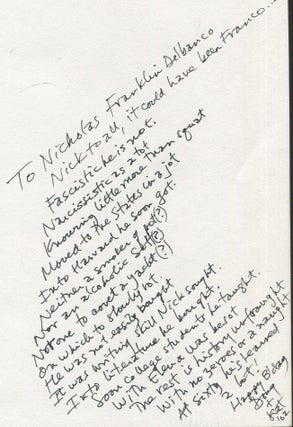 To Nicholas Franklin Delbanco
Nick to all, it could have been Franco...
Fascistic he is not.
Narcissistic as a tot
Knowing little more than squat
Moved to the States in a jet
Into Harvard he soon got.
Neither a smoker of pot (?)
Nor an alcoholic sot (?)
Not one to covet a yacht (?)
on which to slowly rot.
He was not easily bought
It was writing skill Nick sought.
Into literature he brought.
Soon college students he taught.
With Elena was he caught
The rest is history unfraught
With no zeroes or a naught
At sixty he's learned
a lot!
Happy B'day
Doug
Kat
'02